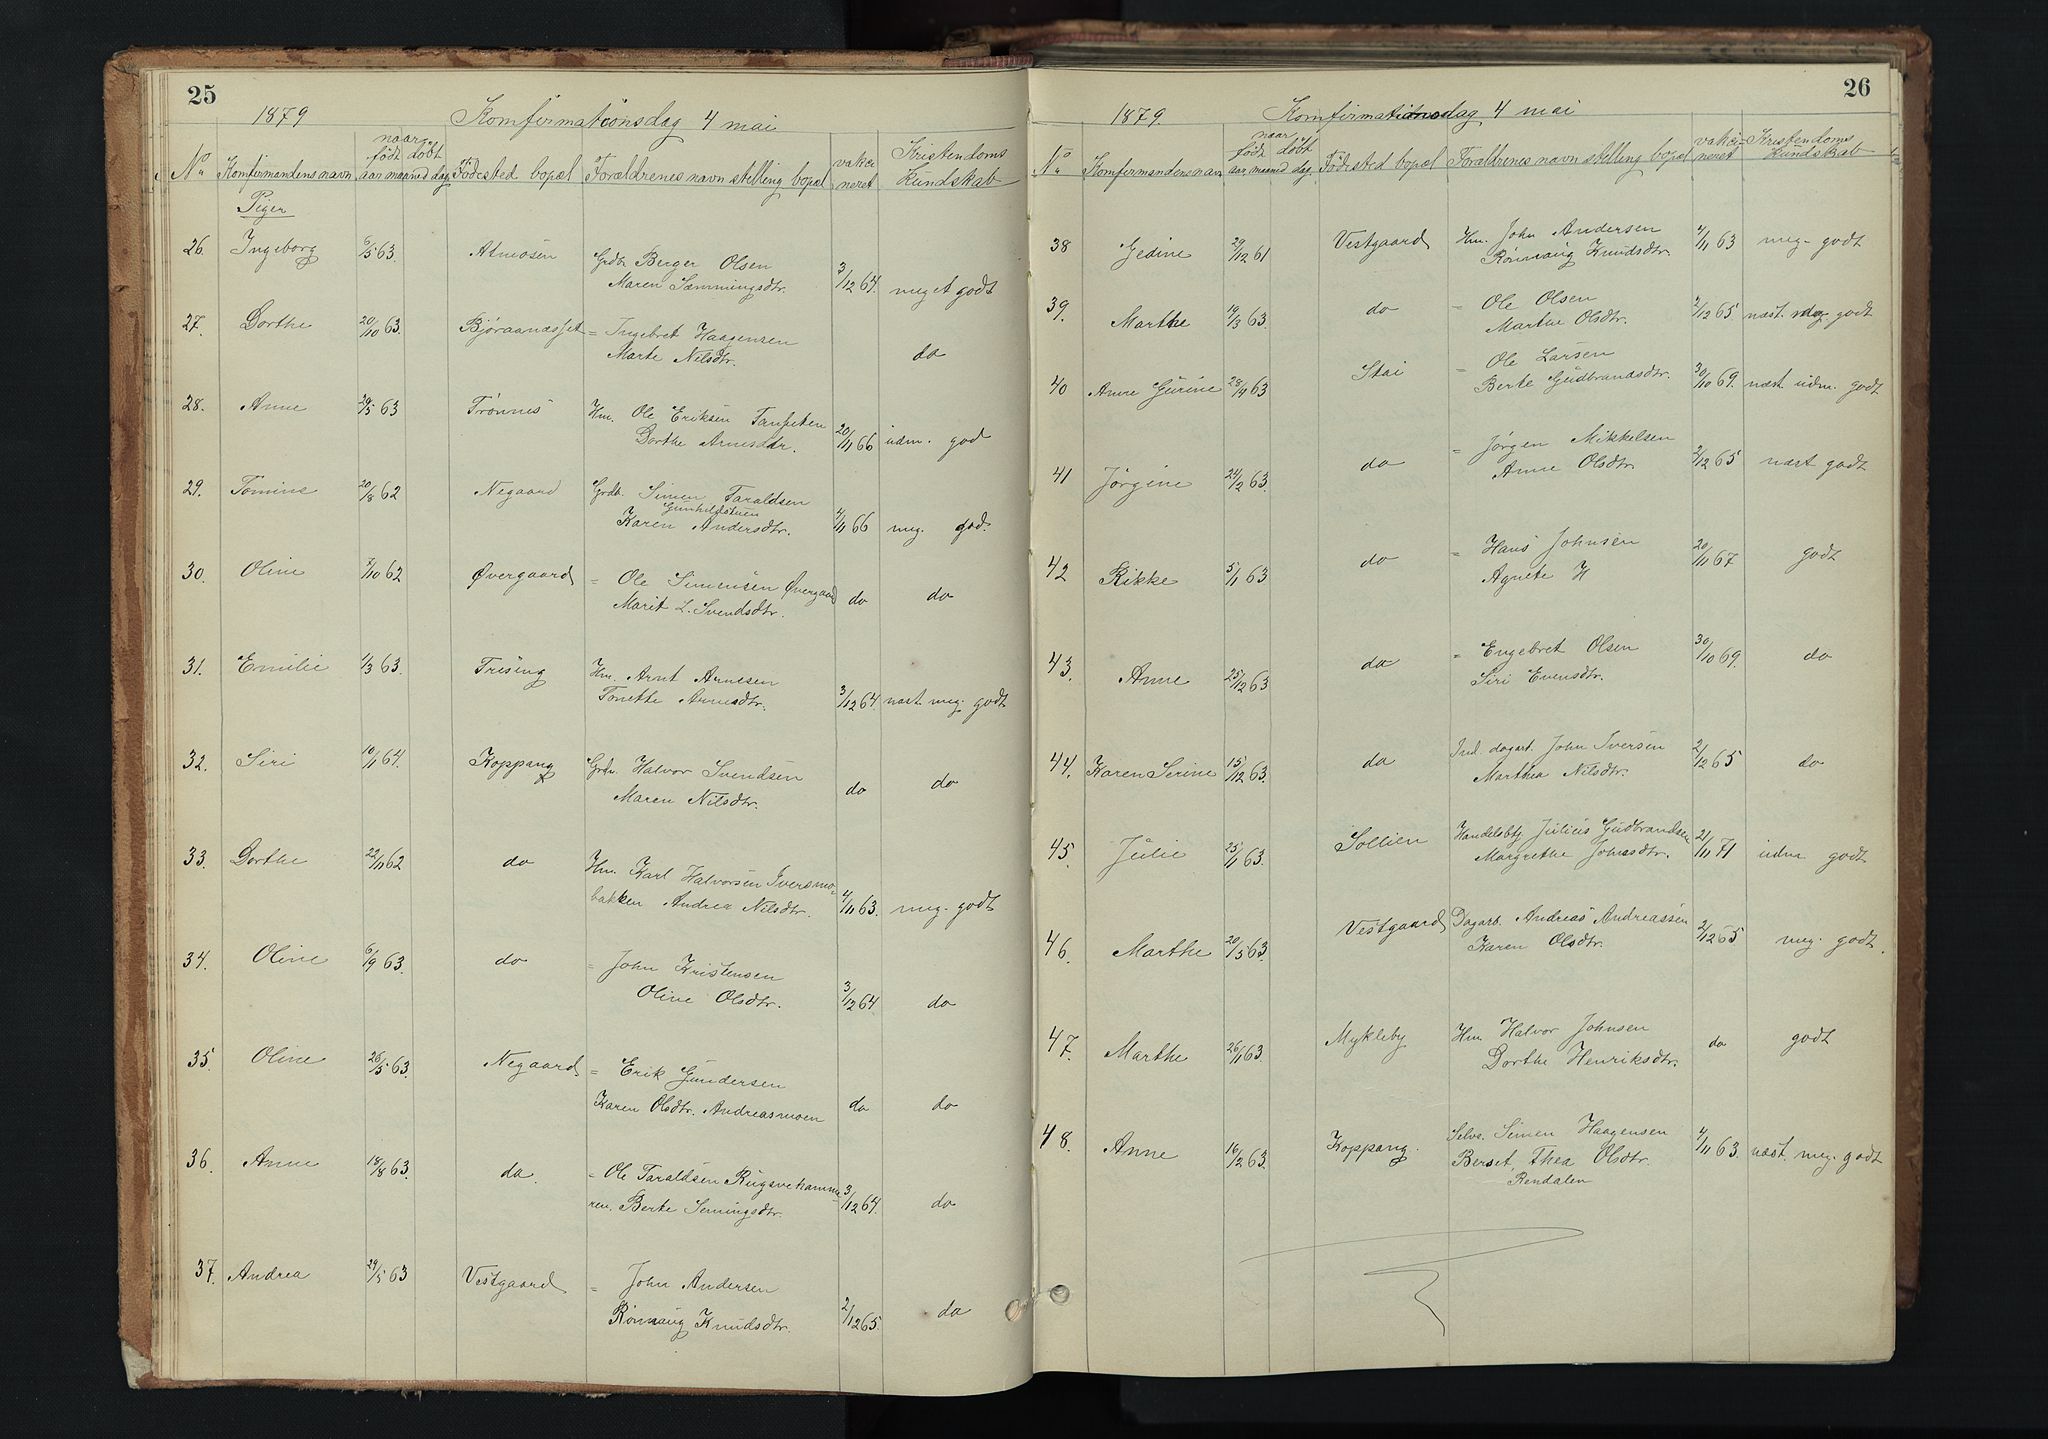 25
1879 Komfirmationsdag 4 mai
No Komfirmandens navn naar født døbt aar maaned dag Fødested bopæl Forældrenes navn stilling bopæl vakci neret Kristendoms kundskab
Piger
26. Ingeborg 6/5 63. Atneosen Grdbr Berger Olsen
Maren Sæmmingsdtr. 3/12 64. meget godt
27. Dorthe 20/10 63. Bjøraanæsset = Ingebret Haagensen
Marte Nilsdtr. do
28. Anne 29/5 63 Trønnes Hm. Ole Eriksen
Dorthe Arnesdtr. 20/11 66 udm. god
29. Tomine 20/8 62 Negaard Grdb. Simen Taraldsen
Gunhildstuen
Karen Andersdtr. 4/11 66 meg. god.
30. Oline 7/10 62 Øvergaard = Ole Simensen Øvergaard
Marit L. Svendsdtr. do do
31. Emilie 1/3 63. Tresing Hm. Arnt Arnesen
Tonette Arnesdtr. 3/12 64. næst. meg. godt
32. Siri 10/1 64. Koppang Grdbr. Halvor Svendsen
Maren Nilsdtr. do do
33. Dorthe 22/11 62 do Hm. Karl Halvorsen Iversmo-
bakken Andrea Nilsdtr. 4/11 63. meg. godt
34. Oline 6/9 63. do = John Kristensen
Oline Olsdtr. 3/12 64. do
35. Oline 26/5 63. Negaard = Erik Gundersen
Karen Olsdtr. Andreasmoen do do
36. Anne 18/8 63. do. = Ole Taraldsen Rugsvehamma
ren. Berte Semingsdtr. 3/12 64. do
37. Andrea 29/5 63 Vestgaard = John Andersen
Rönnaug Knudsdtr. 2/12 65. do
26
1879 Komfirmationsdag 4 mai
No Komfirmandens navn naar født døbt aar maaned dag Fødested bopæl Forældrenes navn stilling bopæl vakci- neret Kristendoms kundskab
38 Gedine 29/12 61 Vestgaard Hm. John Andersen
Rönnaug Knudsdtr. 4/11 63 meg. godt
39. Marthe 19/3 63. do = Ole Olsen
Marthe Olsdtr. 2/12 65. næst. meg. godt
40 Anne Gurine 28/9 63 Stai = Ole Larsen
Berte Gudbrandsdtr. 30/10 69. næst udm. godt
41 Jörgine 24/2 63. do = Jörgen Mikkelsen
Anne Olsdtr. 2/12 65 næst godt
42 Rikke 5/1 63 do = Hans Johnsen
Agnete H 20/11 67 godt
43. Anne 25/12 63 do = Engebret Olsen
Siri Evensdtr. 30/10 69. do
44. Karen Serine 15/12 63. do Ind. dagarb. John Iversen
Marthea Nilsdtr. 2/12 65 do
45. Julie 25/1 63. Sollien Handelsbtj. Julius Gudbrandsen
Margrethe Johnsdtr. 21/11 71 udm godt
46. Marthe 20/5 63. Vestgaard Dagarb. Andreas Andreassen
Karen Olsdtr. 2/12 65 meg. godt.
47. Marthe 26/11 63. Mykleby Hm. Halvor Johnsen
Dorthe Henriksdtr. do godt
48. Anne 16/2 63. Koppang. Selve. Simen Haagensen
Berset, Thea Olsdtr. 4/11 63. næst. meg. godt
Rendalen